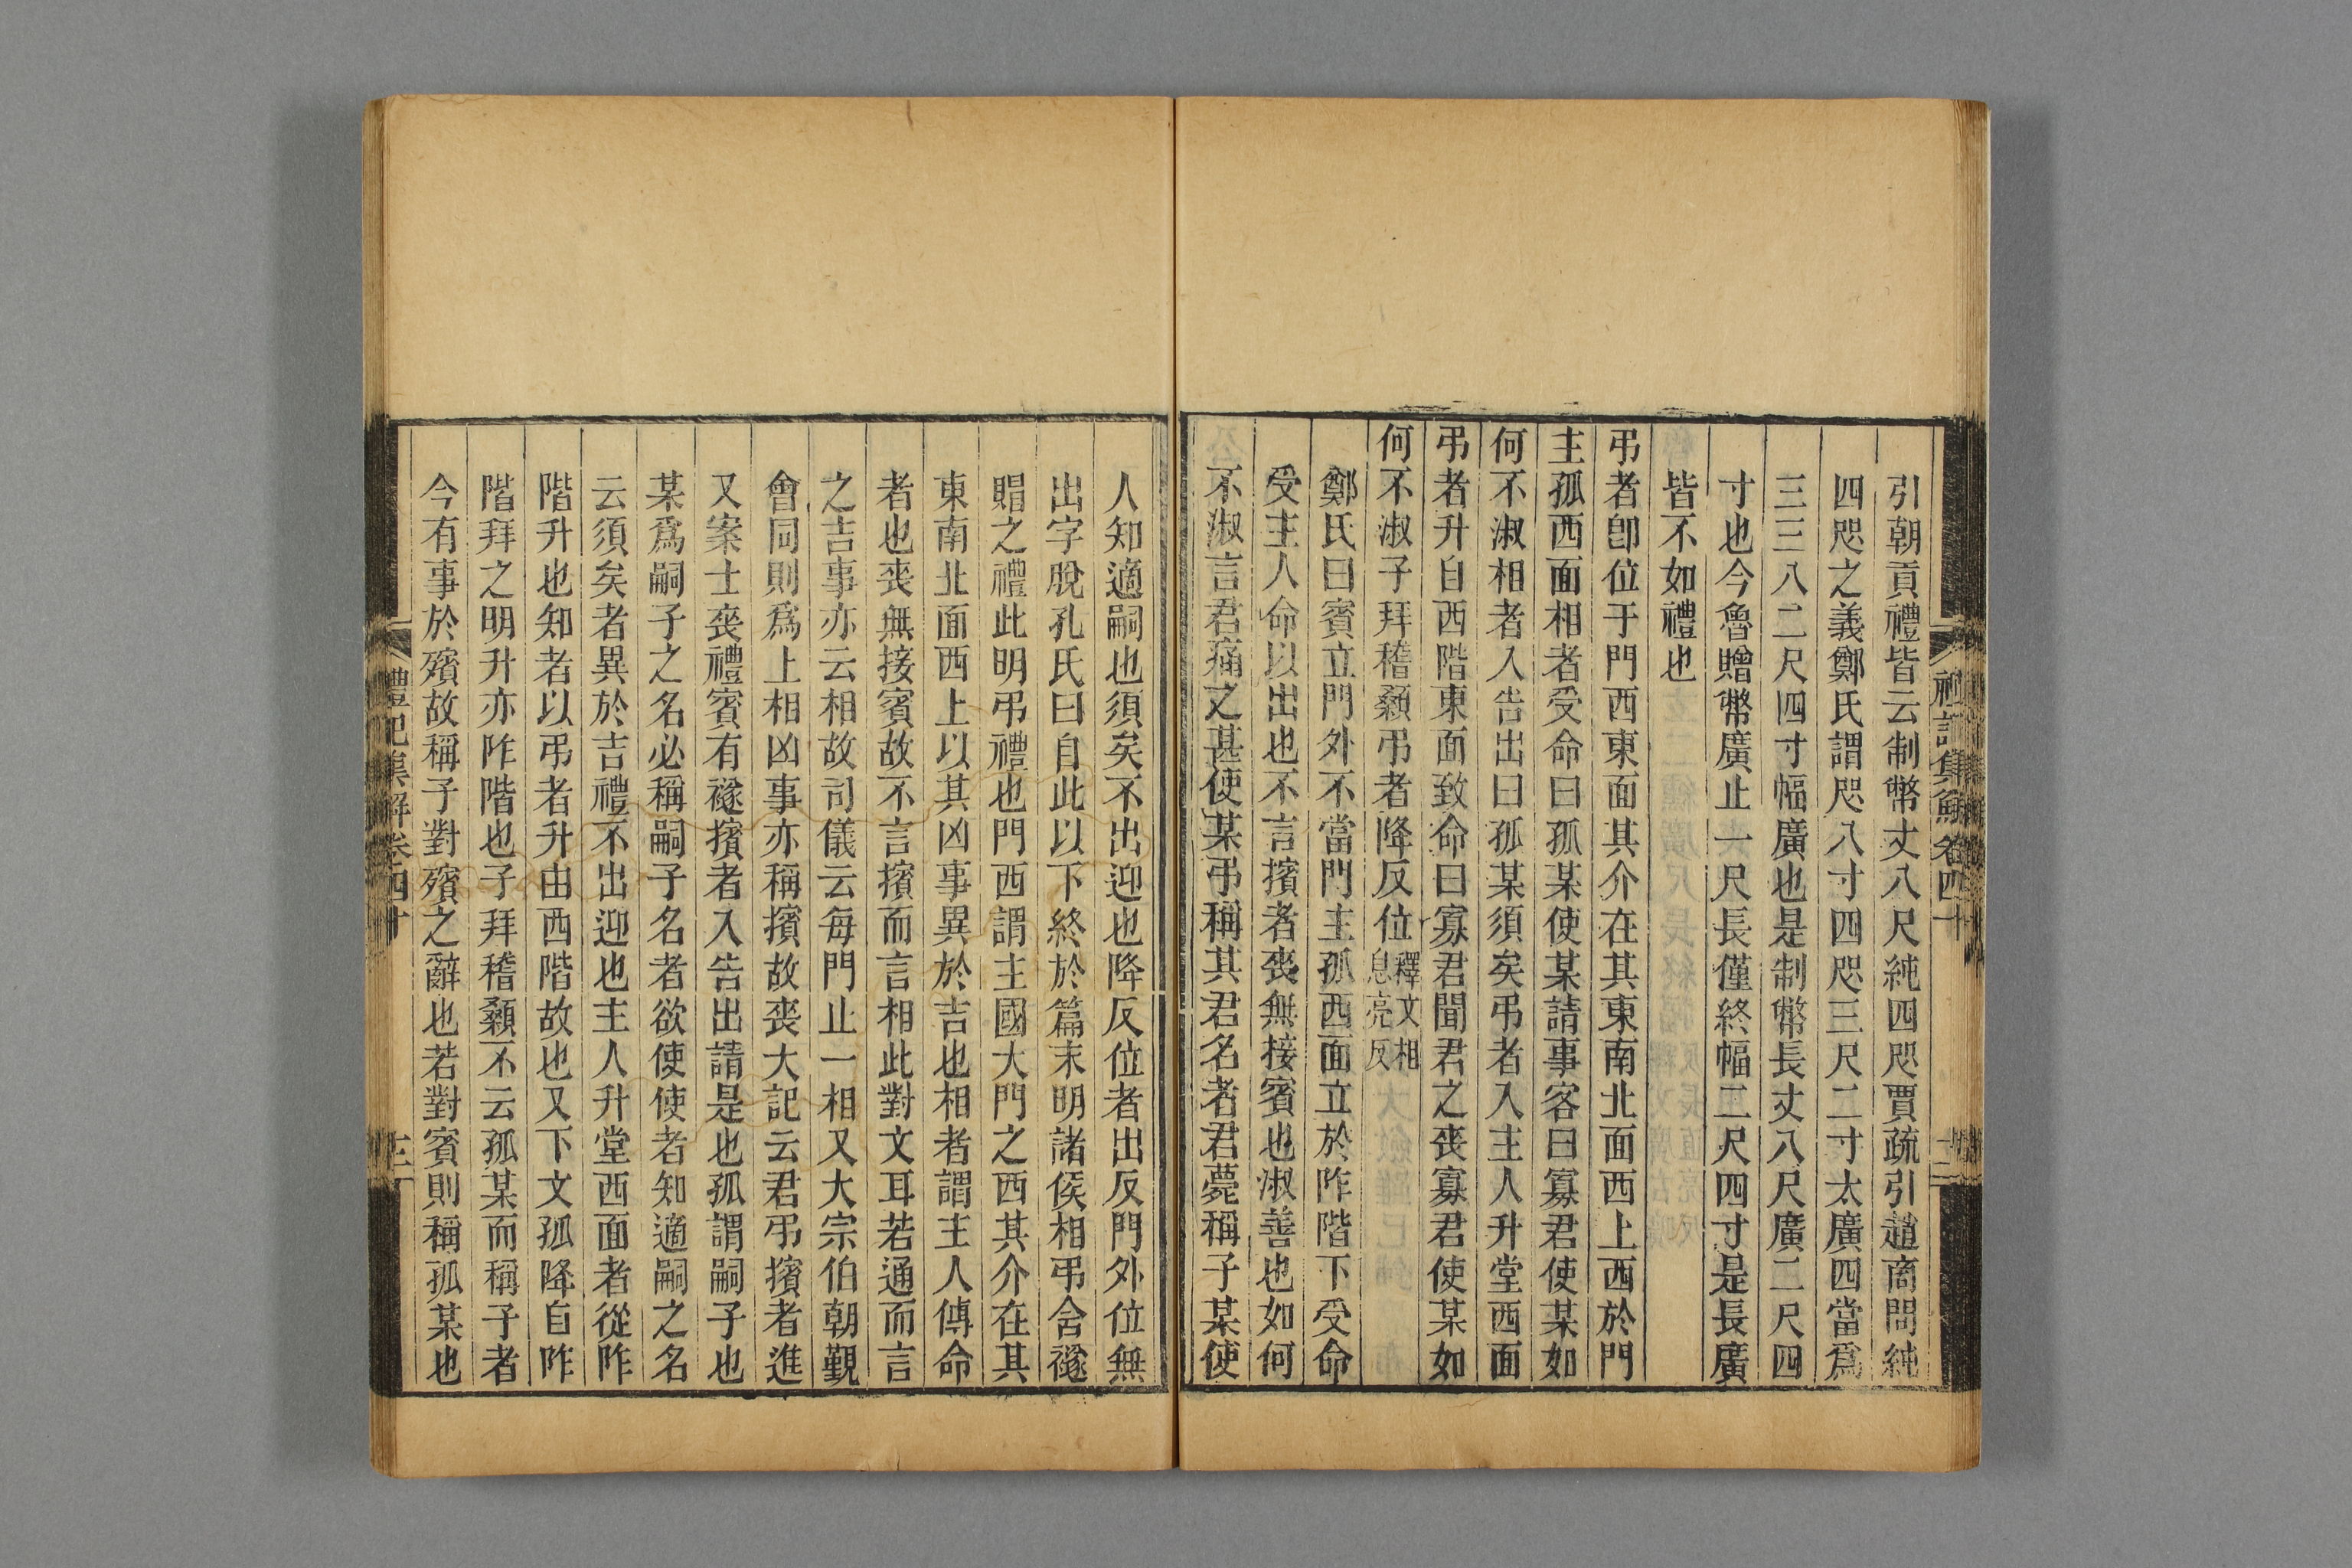 禮記集解卷四十
十二
引朝貢禮皆云制幣丈八尺純四咫賈疏引趙商問純
四咫之義鄭氏謂咫八寸四咫三尺二寸太廣四當爲
三三八二尺四寸幅廣也是制幣長丈八尺廣二尺四
寸也今魯贈幣廣止一尺長僅終幅二尺四寸是長廣
皆不如禮也
弔者卽位于門西東面其介在其東南北面西上西於門
主孤西面相者受命曰孤某使某請事客曰寡君使某如
何不淑相者入告出曰孤某須矣弔者入主人升堂西面
弔者升自西階東面致命曰寡君聞君之喪寡君使某如
何不淑子拜稽顙弔者降反位釋文相息亮反
鄭氏曰賓立門外不當門主孤西面立於阼階下受命
受主人命以出也不言擯者喪無接賓也淑善也如何
不淑言君痛之甚使某弔稱其君名者君薨稱子某使
人知適嗣也須矣不出迎也降反位者出反門外位無
出字脫孔氏曰自此以下終於篇末明諸侯相弔含襚
賵之禮此明弔禮也門西謂主國大門之西其介在其
東南北面西上以其凶事異於吉也相者謂主人傳命
者也喪無接賓故不言擯而言相此對文耳若通而言
之吉事亦云相故司儀云每門止一相又大宗伯朝覲
會同則爲上相凶事亦稱擯故喪大記云君弔擯者進
又案士喪禮賓有襚擯者入告出請是也孤謂嗣子也
某爲嗣子之名必稱嗣子名者欲使使者知適嗣之名
云須矣者異於吉禮不出迎也主人升堂西面者從阼
階升也知者以弔者升由西階故也又下文孤降自阼
階拜之明升亦阼階也子拜稽顙不云孤某而稱子者
今有事於殯故稱子對殯之辭也若對賓則稱孤某也
禮記集解卷四十